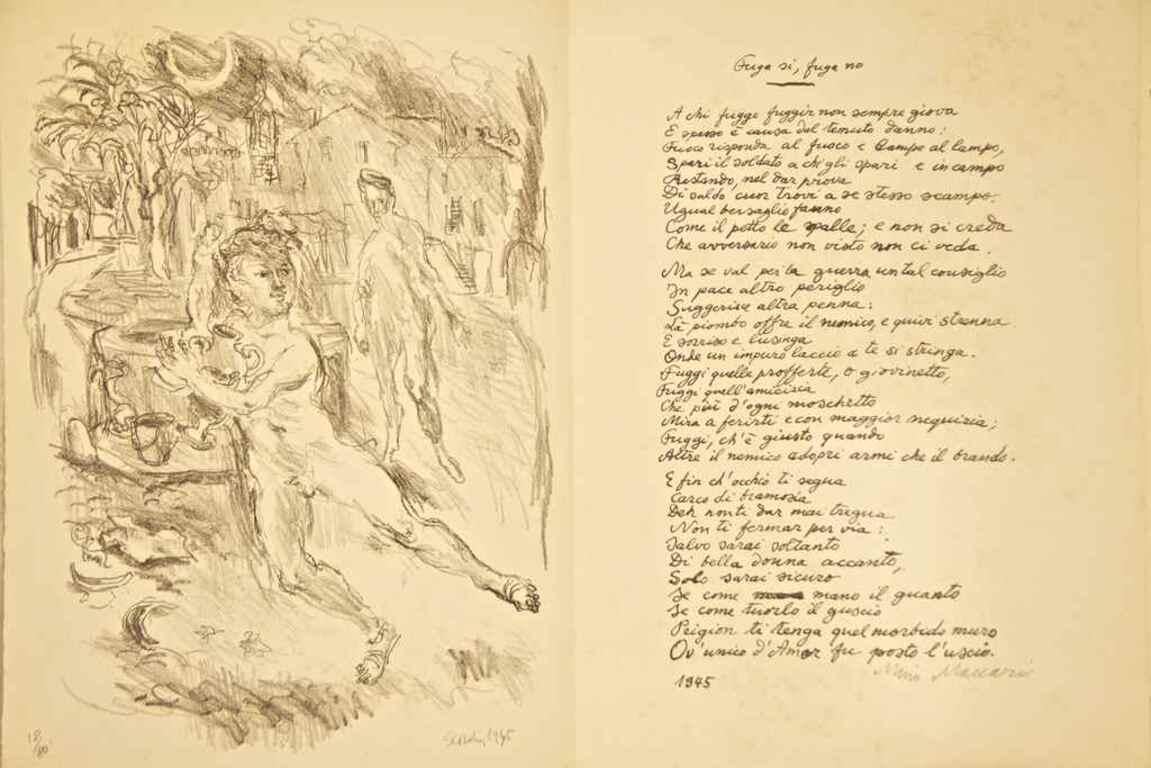 Fuga sì, fuga no
A chi fugge fuggir non sempre giova
E spesso è causa del temuto danno:
Fuoco risponda al fuoco e lampo al lampo,
Spari il soldato a chi gli spari e in campo
Restando, nel dar prova
Di saldo cuor trovi a se stesso scampo.
Ugual bersaglio fanno
Come il petto le spalle; e non si creda
Che avversario non visto non ci veda.
Ma se val per la guerra un tal consiglio
In pace altro periglio
Suggerisce altra penna:
Là piombo offre il nemico, e quivi strenna
E sorriso e lusinga
Onde un impuro laccio a te si stringa.
Fuggi quelle profferte, o giovinetto,
Fuggi quell'amicizia
Che più d'ogni moschetto
Mira a ferirti e con maggior nequizia;
Fuggi, ch'è giusto quando
Altre il nemico adopri armi che il brando.
E fin ch'occhio ti segua
Carco di bramosia
Deh non ti dar mai tregua
Non ti fermar per via:
Salvo sarai soltanto
Di bella donna accanto,
Solo sarai sicuro
Se come mano il guanto
Se come tuorlo il guscio
Prigion ti tenga quel morbido muro
Ov'unico d'Amor fu posto l'uscio.
Maccari
1945
18/80
1945